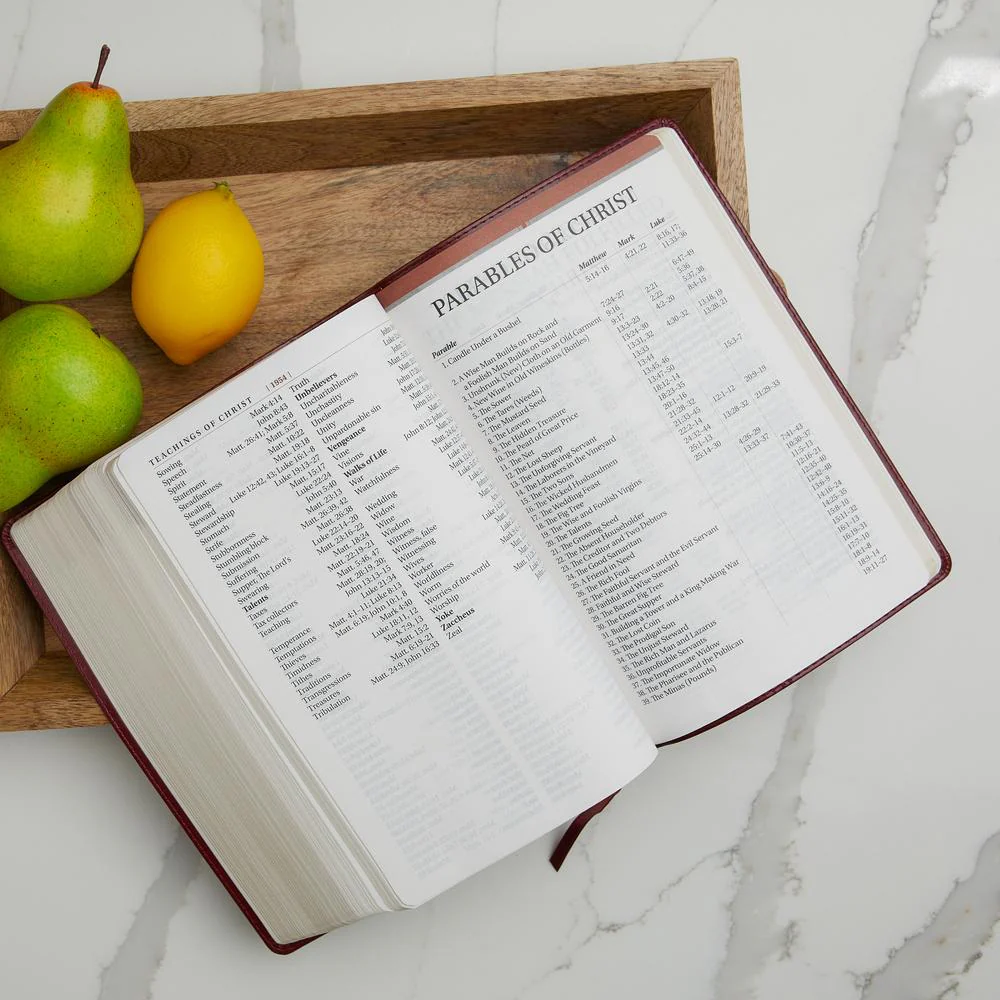 TEACHINGS OF CHRIST | 1954 |
Sowing Mark 4:14
Speech John 8:43
Spirit Matt. 26:41; Mark 5:8
Statement Matt. 5:37
Steadfastness Matt. 10:22
Stealing Matt. 19:18
Steward Luke 12:42, 43; Luke 16:1–8
Stewardship Luke 19:13–27
Stomach Matt. 15:17
Strife Luke 22:24
Stubbornness John 5:40
Stumbling block Matt. 23:13
Submission Matt. 26:39, 42
Suffering Matt. 26:38
Supper, The Lord's Luke 22:14–20
Swearing Matt. 23:16–22
Talents Matt. 18:24
Taxes Matt. 22:19–21
Tax collectors Matt. 5:46, 47
Teaching Matt. 28:19, 20;
John 13:13–15
Temperance Luke 21:34
Temptations Matt. 4:1–11; Luke 8:13
Thieves Matt. 6:19; John 10:1, 8
Timeliness Mark 4:30
Tithes Luke 18:11, 12
Traditions Mark 7:9, 13
Transgressions Matt. 15:2
Treasures Matt. 6:19–21
Tribulation Matt. 24:9; John 16:33
Truth
Unbelievers
Uncharitableness
Unchastity
Uncleanness
Unity
Unpardonable sin
Vengeance
Vine
Visions
Walks of Life
War
Watchfulness
Wedding
Widow
Wine
Wisdom
Witness
Witness, false
Witnessing
Wives
Worker
Worldliness
Worries of the world
Worship
Yoke
Zacchaeus
Zeal
PARABLES OF CHRIST
Parable Matthew Mark Luke
1. Candle Under a Bushel 5:14–16 4:21, 22 8:16, 17;
11:33–36
2. A Wise Man Builds on Rock and
a Foolish Man Builds on Sand 7:24–27 6:47–49
3. Unshrunk (New) Cloth on an Old Garment 9:16 2:21 5:36
4. New Wine in Old Wineskins (Bottles) 9:17 2:22 5:37, 38
5. The Sower 13:3–23 4:2–20 8:4–15
6. The Tares (Weeds) 13:24–30
7. The Mustard Seed 13:31, 32 4:30–32 13:18, 19
8. The Leaven 13:33 13:20, 21
9. The Hidden Treasure 13:44
10. The Pearl of Great Price 13:45, 46
11. The Net 13:47–50
12. The Lost Sheep 18:12–14 15:3–7
13. The Unforgiving Servant 18:23–35
14. The Laborers in the Vineyard 20:1–16
15. The Two Sons 21:28–32
16. The Wicked Husbandmen 21:33–45 12:1–12 20:9–19
17. The Wedding Feast 22:2–14
18. The Fig Tree 24:32–44 13:28–32 21:29–33
19. The Wise and Foolish Virgins 25:1–13
20. The Talents 25:14–30
21. The Growing Seed 4:26–29
22. The Absent Householder 13:33–37
23. The Creditor and Two Debtors 7:41–43
24. The Good Samaritan 10:30–37
25. A Friend in Need 11:5–13
26. The Rich Fool 12:16–21
27. The Faithful Servant and the Evil Servant 12:35–40
28. Faithful and Wise Steward 12:42–48
29. The Barren Fig Tree 13:6–9
30. The Great Supper 14:16–24
31. Building a Tower and a King Making War 14:25–35
32. The Lost Coin 15:8–10
33. The Prodigal Son 15:11–32
34. The Unjust Steward 16:1–13
35. The Rich Man and Lazarus 16:19–31
36. Unprofitable Servants 17:7–10
37. The Importunate Widow 18:1–8
38. The Pharisee and the Publican 18:9–14
39. The Minas (Pounds) 19:11–27